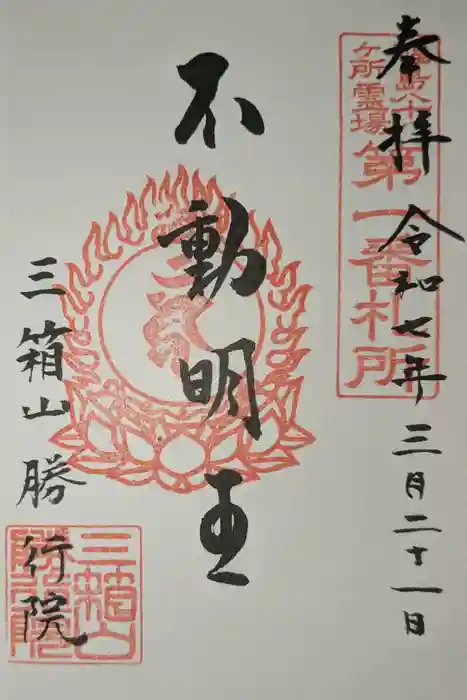 奉拝 令和七年三月二十一日
福島八十八
ヶ所霊場
第一番札所
不動明王
三箱山勝行院
三箱山
勝行院